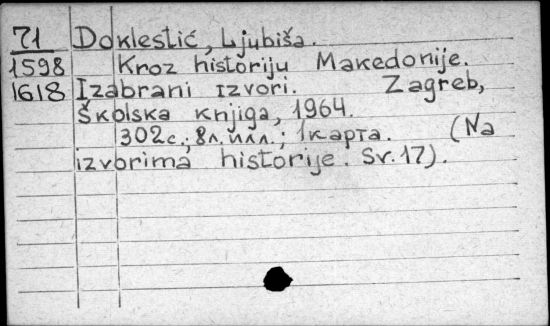 71 Doklestić, Ljubiša.
1598 Kroz historiju Makedonije.
1618 Izabrani izvori. Zagreb,
Školska knjiga, 1964.
302с.; 8л.илл.; 1карта. (Na
izvorima historije. Sv.17).